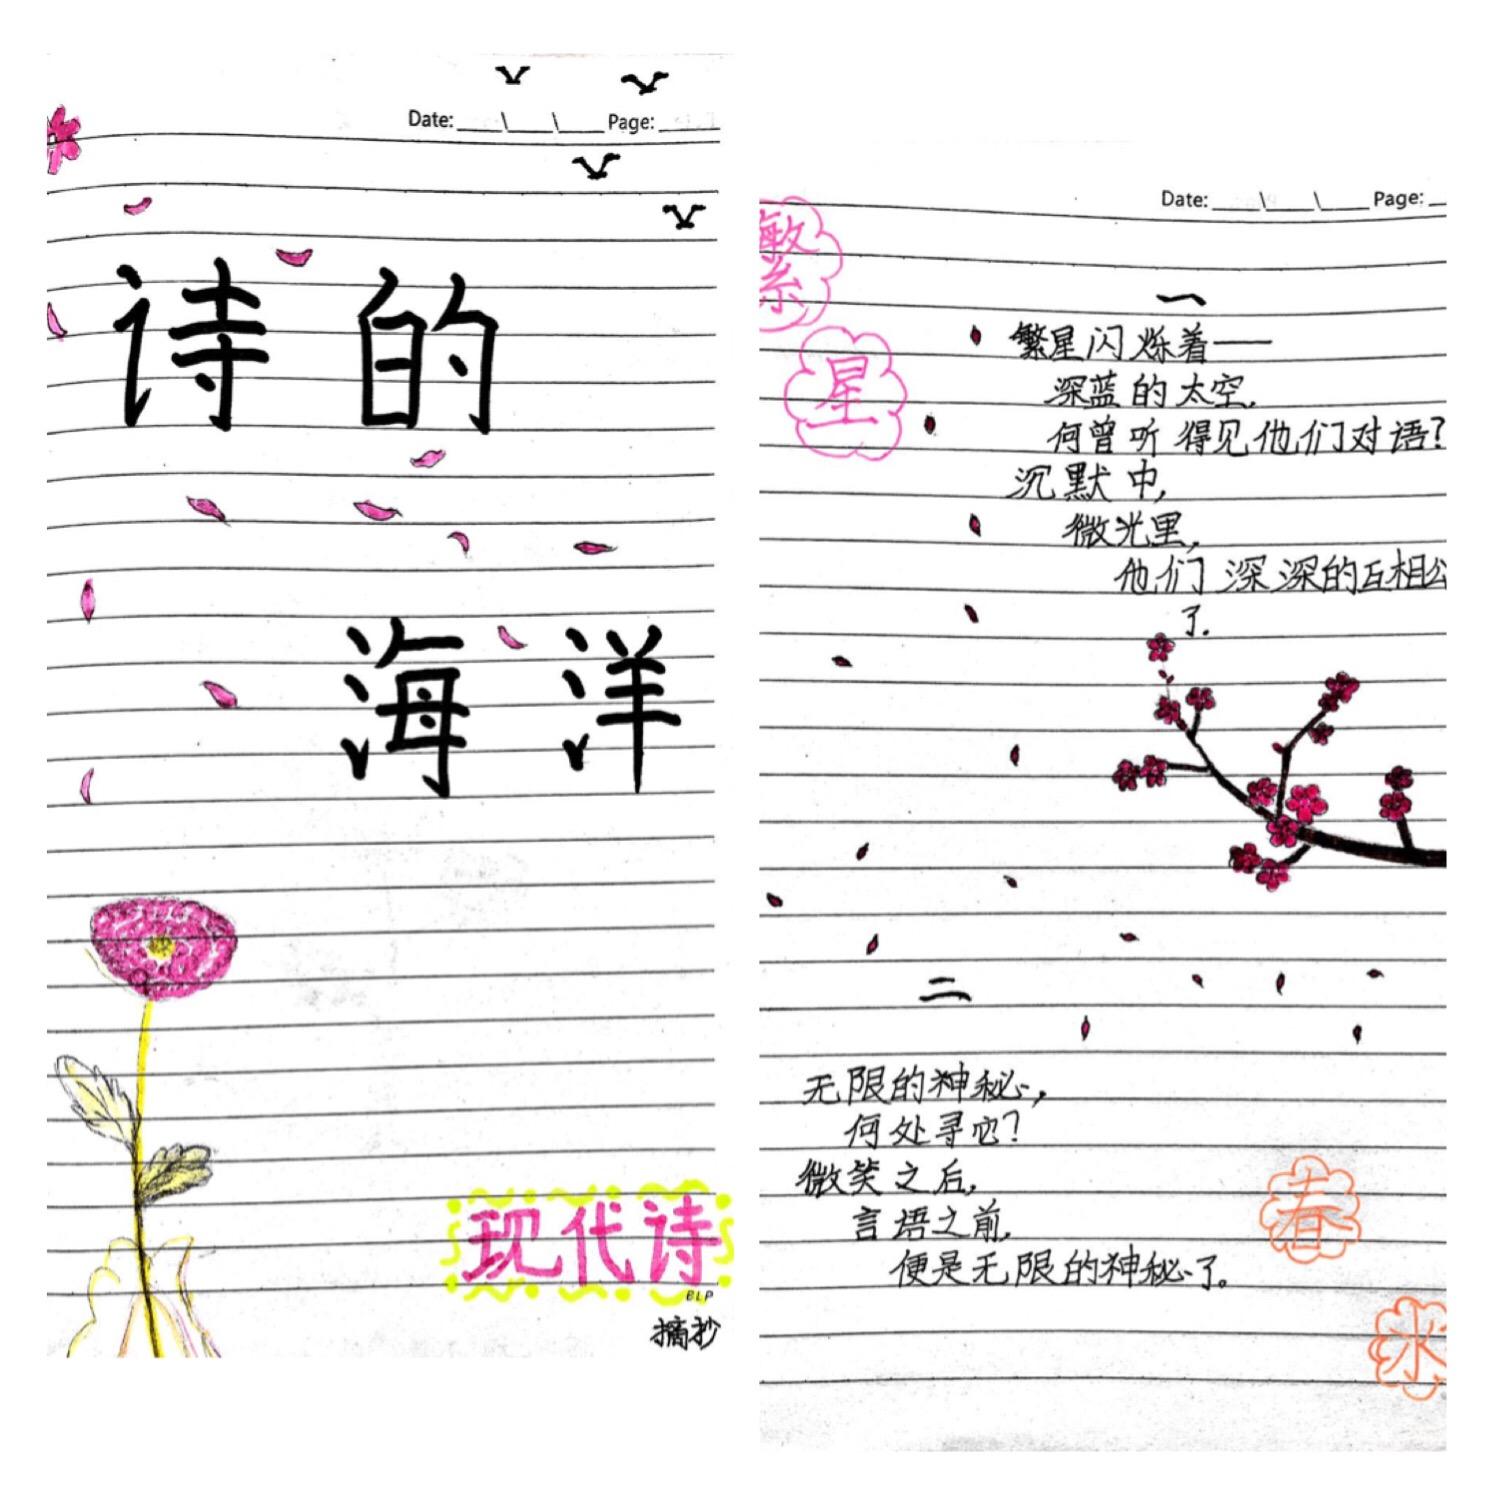 Date: \ \ Page:
诗的
海洋
现代诗
BLP
摘抄
Date: \ \ Page:
繁
星
一
繁星闪烁着——
深蓝的太空,
何曾听得见他们对语?
沉默中,
微光里,
他们深深的互相
了.
二
无限的神秘,
何处寻它?
微笑之后,
言语之前,
便是无限的神秘了。
春
水